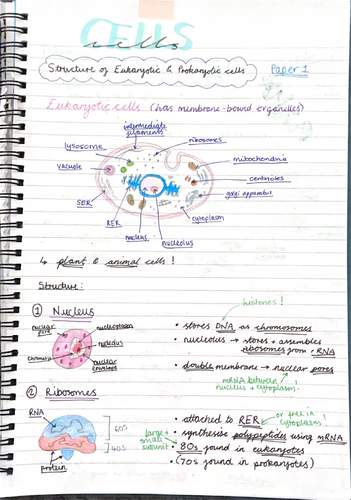 CELLS
cells
Structure of Eukaryotic & Prokaryotic cells
Paper 1
Eukaryotic cells (has membrane-bound organelles)
intermediate filaments
ribosomes
lysosome
mitochondria
vacuole
centrioles
golgi apparatus
SER
cytoplasm
RER
nucleus
nucleolus
↳ plant & animal cells!
Structure:
histones!
① Nucleus
nuclear pore
nucleoplasm
nucleolus
chromatin
nuclear envelope
• stores DNA as chromosomes
• nucleolus → stores + assembles
ribosomes from rRNA
• double membrane → nuclear pores
mRNA between
nucleus + cytoplasm!
② Ribosomes
RNA
60S
40S
protein
large +
small
subunit
• attached to RER or free in
cytoplasm!
• synthesise polypeptides using mRNA
• 80s found in eukaryotes
• (70s found in prokaryotes)